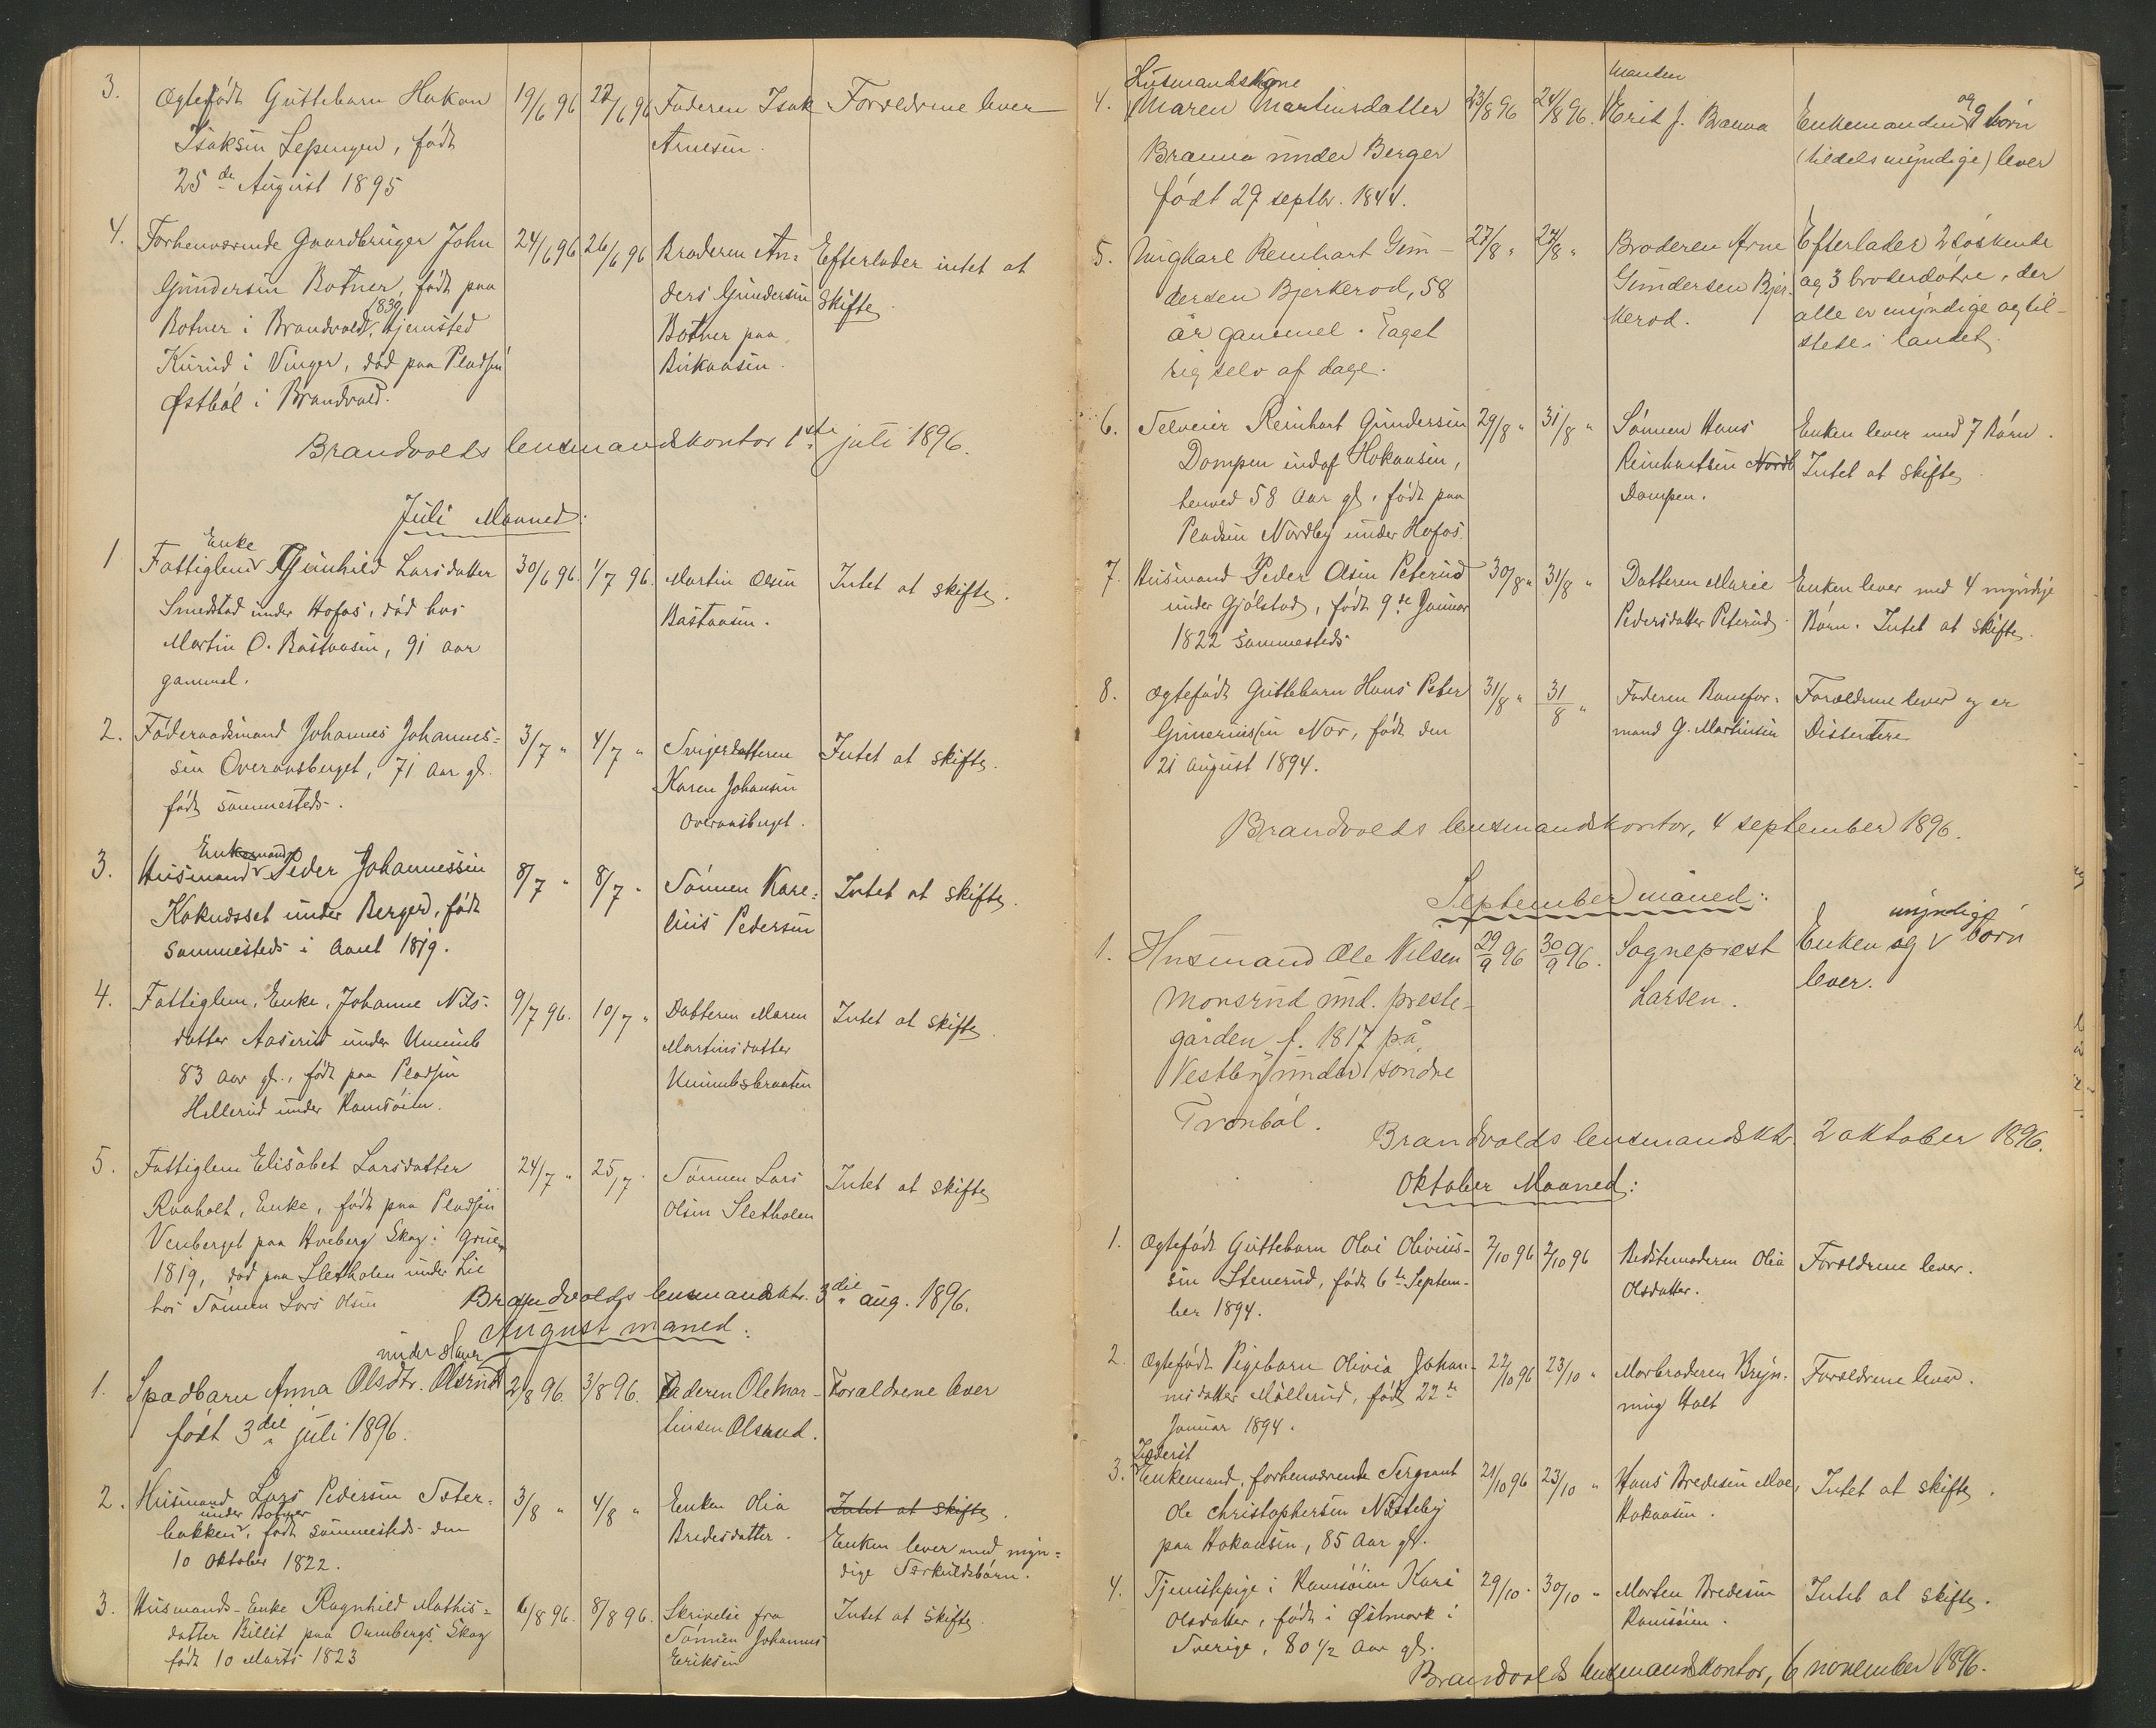 3. Ægtefødt Guttebarn Hakon 19/6 96 27/6 96 Faderen Isak Forældrene lever
Isaksen Lepungen, født Arnesen.
25de August 1895
4. Forhenværende Gaardbruger John 24/6 96 26/6 96 Broderen An= Efterlader intet at
Gundersen Botner, født paa ders Gundersen Skifte.
1839
Botner i Brandvold, Hjemsted Botner paa
Kurud i Vinger, død paa Pladsen Birkaasen.
Østbøl i Brandvold.
Brandvolds lensmandskontor 1ste juli 1896.
Juli Maaned:
Enke
1 Fattiglem Gunhild Larsdatter 30/6 96. 1/7 96. Martin Olsen Intet at skifte.
Smedstad under Hofos, død hos Bastaasen.
Martin O. Bastaasen, 91 aar
gammel.
2. Føderaadsmand Johannes Johannes= 3/7 " 4/7 " Svigerdatteren Intet at skifte.
sen Overaasberget, 71 Aar gl. Karen Johansen
født sammesteds. Overaasberget.
Enkemand
3. Husmand Peder Johannessen 8/7 " 8/7 " Sønnen Kare= Intet at skifte.
Kakudsset under Berger, født lius Pedersen
sammesteds i Aaret 1819.
4. Fattiglem, Enke, Johanne Nils= 9/7 96. 10/7 " Datteren Maren Intet at skifte.
datter Aaserud under Ummeb Martinsdatter
83 Aar gl., født paa Pladsen
Hellerud under Ramsøien.
5. Fattiglem Elisabet Larsdatter 24/7 " 25/7 " Sønnen Lars Intet at skifte
Raaholt, Enke, født paa Pladsen Olsen Sletholen
Venberget paa Hveberg Skog i Grue
1819, død paa Sletholen under Lie
hos Sønnen Lars Olsen
Brandvolds lensmandsktr. 3die aug. 1896.
August måned:
under Haver
1. Spædbarn Anna Olsdtr. Olsrud 2/8 96. 3/8 96. Faderen Ole Mar- Forældrene lever
født 3die juli 1896. tinsen Olsrud.
2. Husmand Lars Pedersen Sæter= 3/8 " 4/8 " Enken Olia Intet at skifte.
under Botner
bakken, født sammesteds den Bredesdatter. Enken lever med myn=
10 Oktober 1822. dige Særkuldsbørn.
3. Husmands-Enke Ragnhild Mathis= 6/8 96. 8/8 96. Skrivelse fra Intet at skifte.
datter Billit paa Ormbergs Skog Sønnen Johannes
født 10 Marts 1823 Eriksen
Husmandskone manden
4. Maren Martinsdatter 23/8 96 24/8 96. Erik J. Brænna Enkemanden og 9 børn
Brænna under Berger (tildels myndige) lever
født 29 septbr. 1844.
5. Ungkarl Reinhart Gun- 27/8 " 27/8 " Broderen Arne Efterlader 2 søskende
dersen Bjerkerod, 58 Gundersen Bjer- og 3 broderdøtre, der
år gammel. Taget kerod. alle er myndige og til-
sig selv af dage. stede i landet
6. Selveier Reinhart Gundersen 29/8 " 31/8 " Sønnen Hans Enken lever med 7 Børn.
Dompen indaf Hokaasen, Reinhartsen Nordb Intet at skifte.
henved 58 Aar gl. født paa Dompen.
Pladsen Nordby under Hofos.
7. Husmand Peder Olsen Peterud 30/8 " 31/8 " Datteren Marie Enken lever med 4 myndige
under Gjølstad, født 9de Januar Pedersdatter Peterud. Børn. Intet at skifte.
1822 sammesteds
8. Ægtefødt Guttebarn Hans Peter 31/8 " 31/8 " Faderen Banefor= Forældrene lever og er
Gunerius[s]en Nor, født den mand G. Martinsen Dissentere
21 August 1894.
Brandvolds lensmandskontor, 4 september 1896.
September måned:
myndige
1. Husmand Ole Nilsen 29/9 96 30/9 96. Sogneprest Enken og børn
Monsrud und. preste- Larsen. lever.
gården f. 1817 på
Vestby under søndre
Tronbøl.
Brandvolds lensmandsktr. 2 oktober 1896.
Oktober Maaned:
1. Ægtefødt Guttebarn Olai Olivius- 2/10 96 2/10 96 Bedstemoderen Olia Forældrene lever.
sen Stenerud, født 6te Septem- Olsdatter.
ber 1894.
2. Ægtefødt Pigebarn Olivia Johan- 22/10 96 23/10 " Morbroderen Bryn- Forældrene lever.
nesdatter Møllerud, født 22de ning Holt
Januar 1894.
3. Enkemand, forhenværende Sergeant 21/10 96 23/10 " Hans Bredesen Moe, Intet at skifte.
Ole Christophersen Næsteby Hokaasen.
paa Hokaasen, 85 Aar gl.
4. Tjenestepige i Ramsøien Kari 29/10 " 30/10 " Morten Bredesen Intet at skifte.
Olsdatter, født i Østmark i Ramsøien.
Sverige, 80 1/2 Aar gl.
Brandvolds lensmandskontor, 6 november 1896.